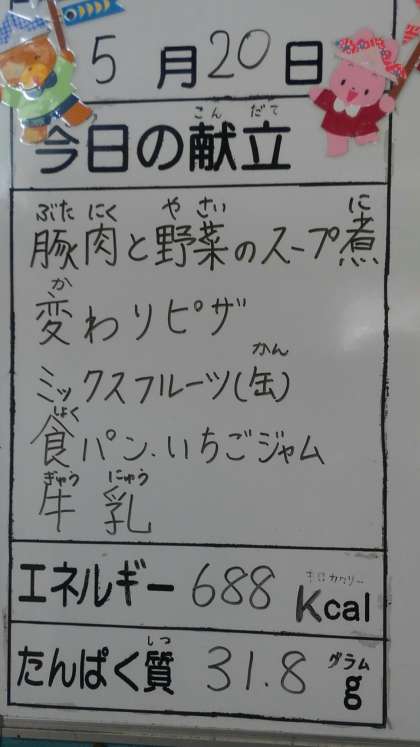 5月20日
こんだて
今日の献立
ぶたにく やさい に
豚肉と野菜のスープ煮
か
変わりピザ
かん
ミックスフルーツ(缶)
しょく
食パン.いちごジャム
ぎゅう にゅう
牛 乳
エネルギー 688 Kcal
しつ グラム
たんぱく質 31.8 g